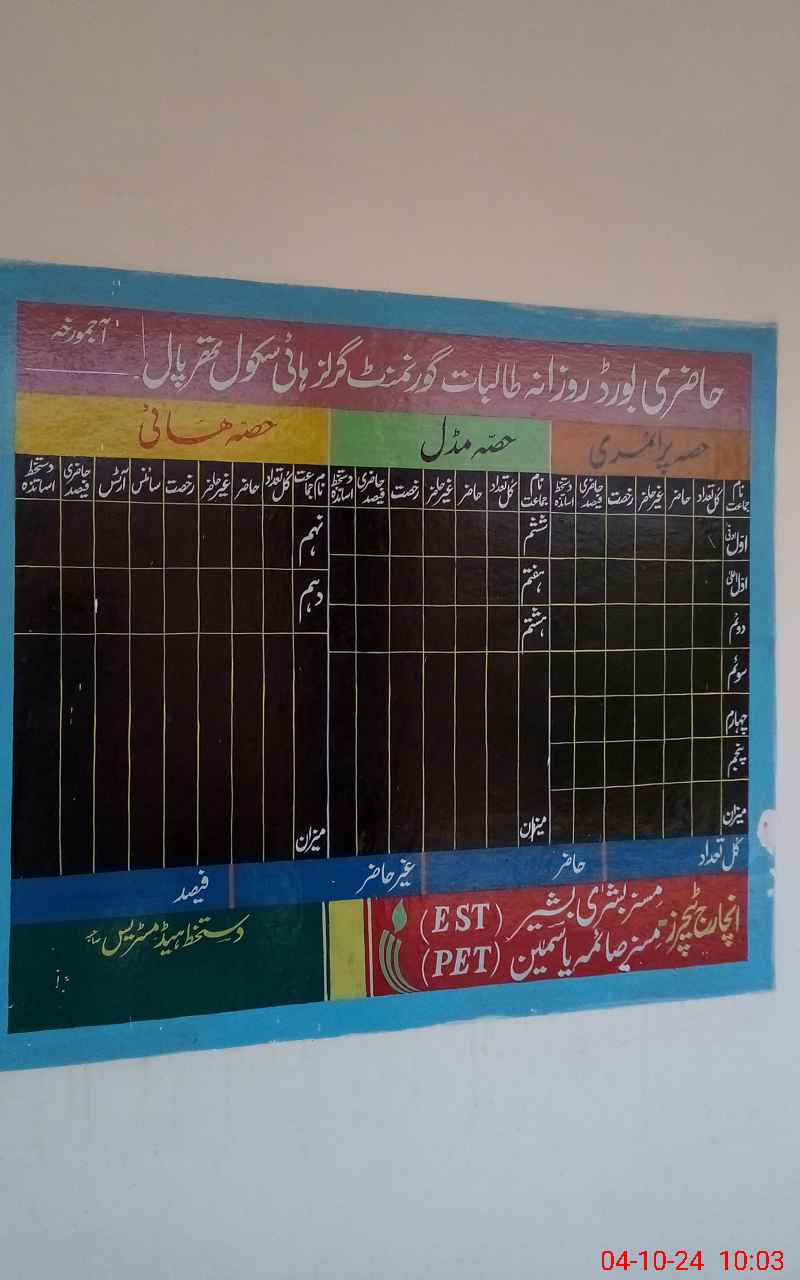 حاضری بورڈ روزانہ طالبات گورنمنٹ گرلز ہائی سکول تھرپال
آجمورخہ
حصہ پرائمری
حصہ مڈل
حصہ ہائی
نام جماعت کل تعداد حاضر غیر حاضر رخصت حاضری فیصد دستخط اساتذہ
نام جماعت کل تعداد حاضر غیر حاضر رخصت حاضری فیصد دستخط اساتذہ
نام جماعت کل تعداد حاضر غیر حاضر رخصت سائنس آرٹس حاضری فیصد دستخط اساتذہ
اول ادنیٰ
اول اعلیٰ
دوئم
سوئم
چہارم
پنجم
میزان
ششم
ہفتم
ہشتم
میزان
نہم
دہم
میزان
کل تعداد حاضر غیر حاضر فیصد
انچارج ٹیچرز
مسز بشریٰ بشیر (EST)
مسز صائمہ یاسمین (PET)
دستخط ہیڈ مسٹریس صاحبہ
04-10-24 10:03